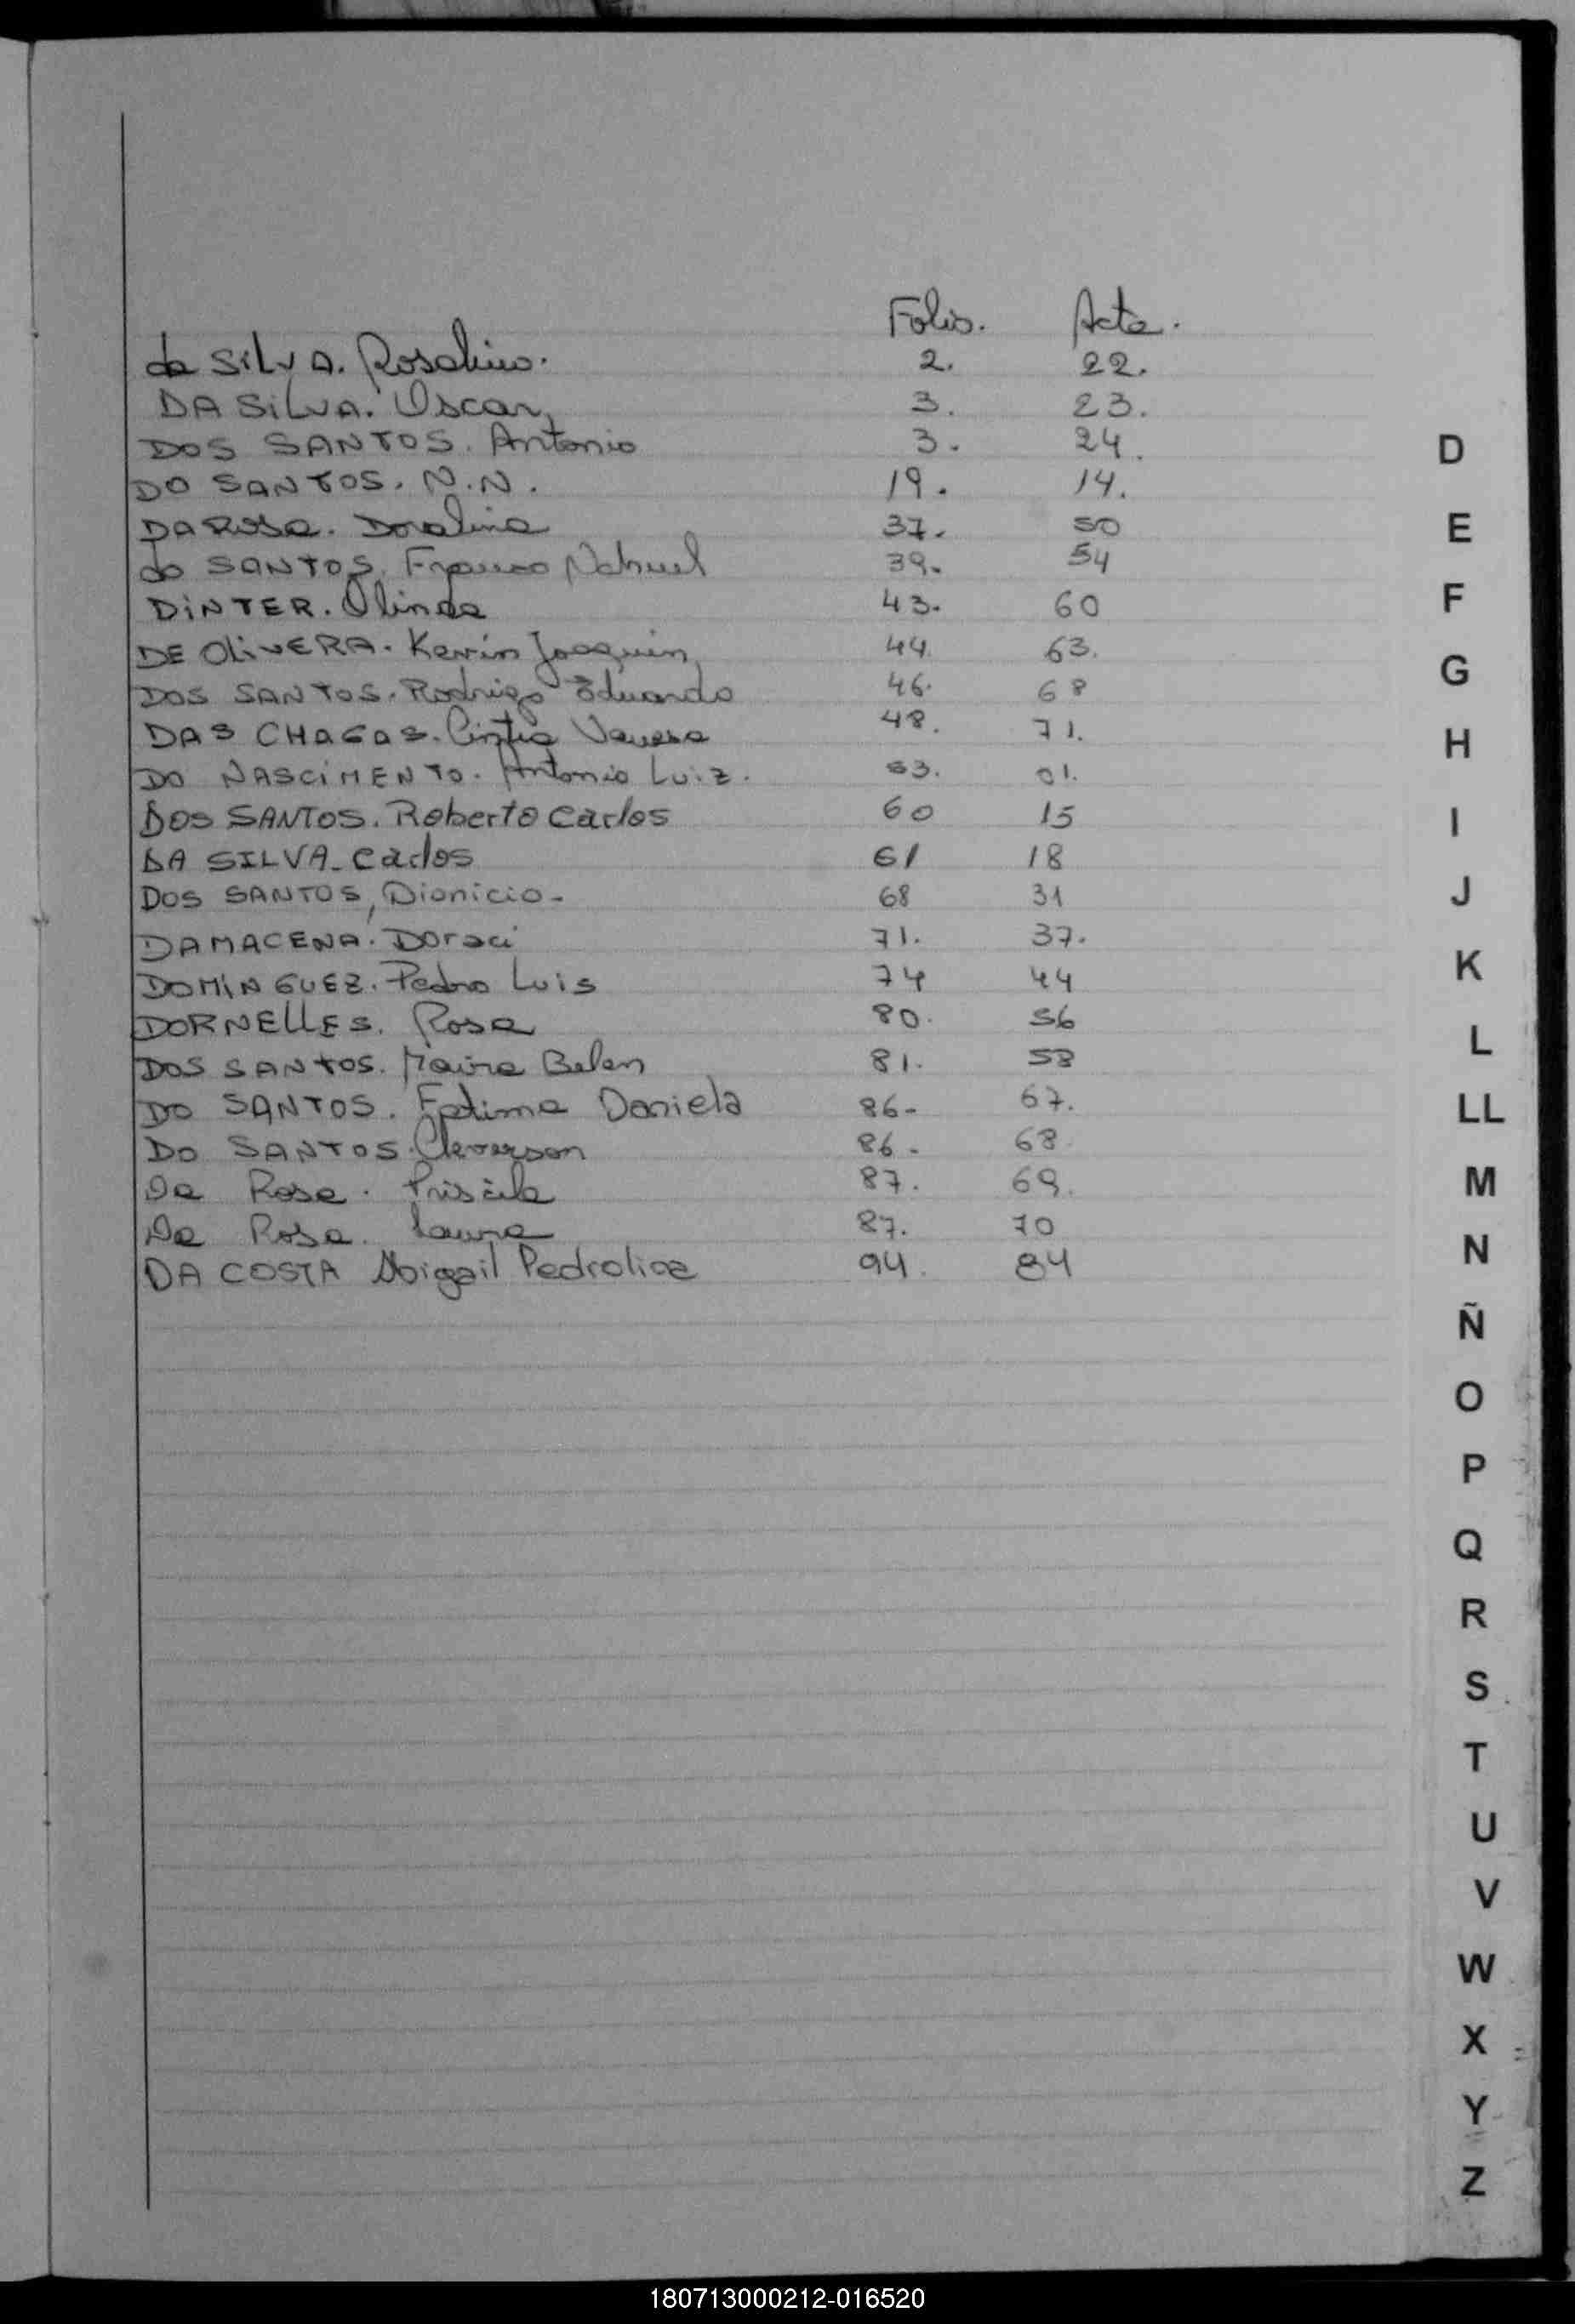 Folio. Acta.
da SILVA. Rosalino. 2. 22.
DA SILVA. Oscar, 3. 23.
DOS SANTOS. Antonio 3. 24.
DO SANTOS. N.N. 19. 14.
DA ROSA. Doralina 37. 50
do SANTOS. Franco Nahuel 39. 54
DINTER. Olinda 43. 60
DE OLIVERA. Kevin Joaquin, 44. 63.
DOS SANTOS. Rodrigo Eduardo 46. 68
DAS CHAGAS. Cintia Vanesa 48. 71.
DO NASCIMENTO. Antonio Luiz. 53. 01.
DOS SANTOS. Roberto Carlos 60 15
DA SILVA_Carlos 61 18
DOS SANTOS, Dionicio- 68 31
DAMACENA. Doraci 71. 37.
DOMINGUEZ. Pedro Luis 74 44
DORNELLES. Rosa 80. 56
DOS SANTOS. Maira Belen 81. 58
DO SANTOS. Fatima Daniela 86- 67.
DO SANTOS. Cleverson 86- 68.
Da Rosa. Priscila 87. 69.
Da Rosa. Laura 87. 70
DA COSTA Abigail Pedrolina 94. 84
D
E
F
G
H
I
J
K
L
LL
M
N
Ñ
O
P
Q
R
S
T
U
V
W
X
Y
Z
180713000212-016520